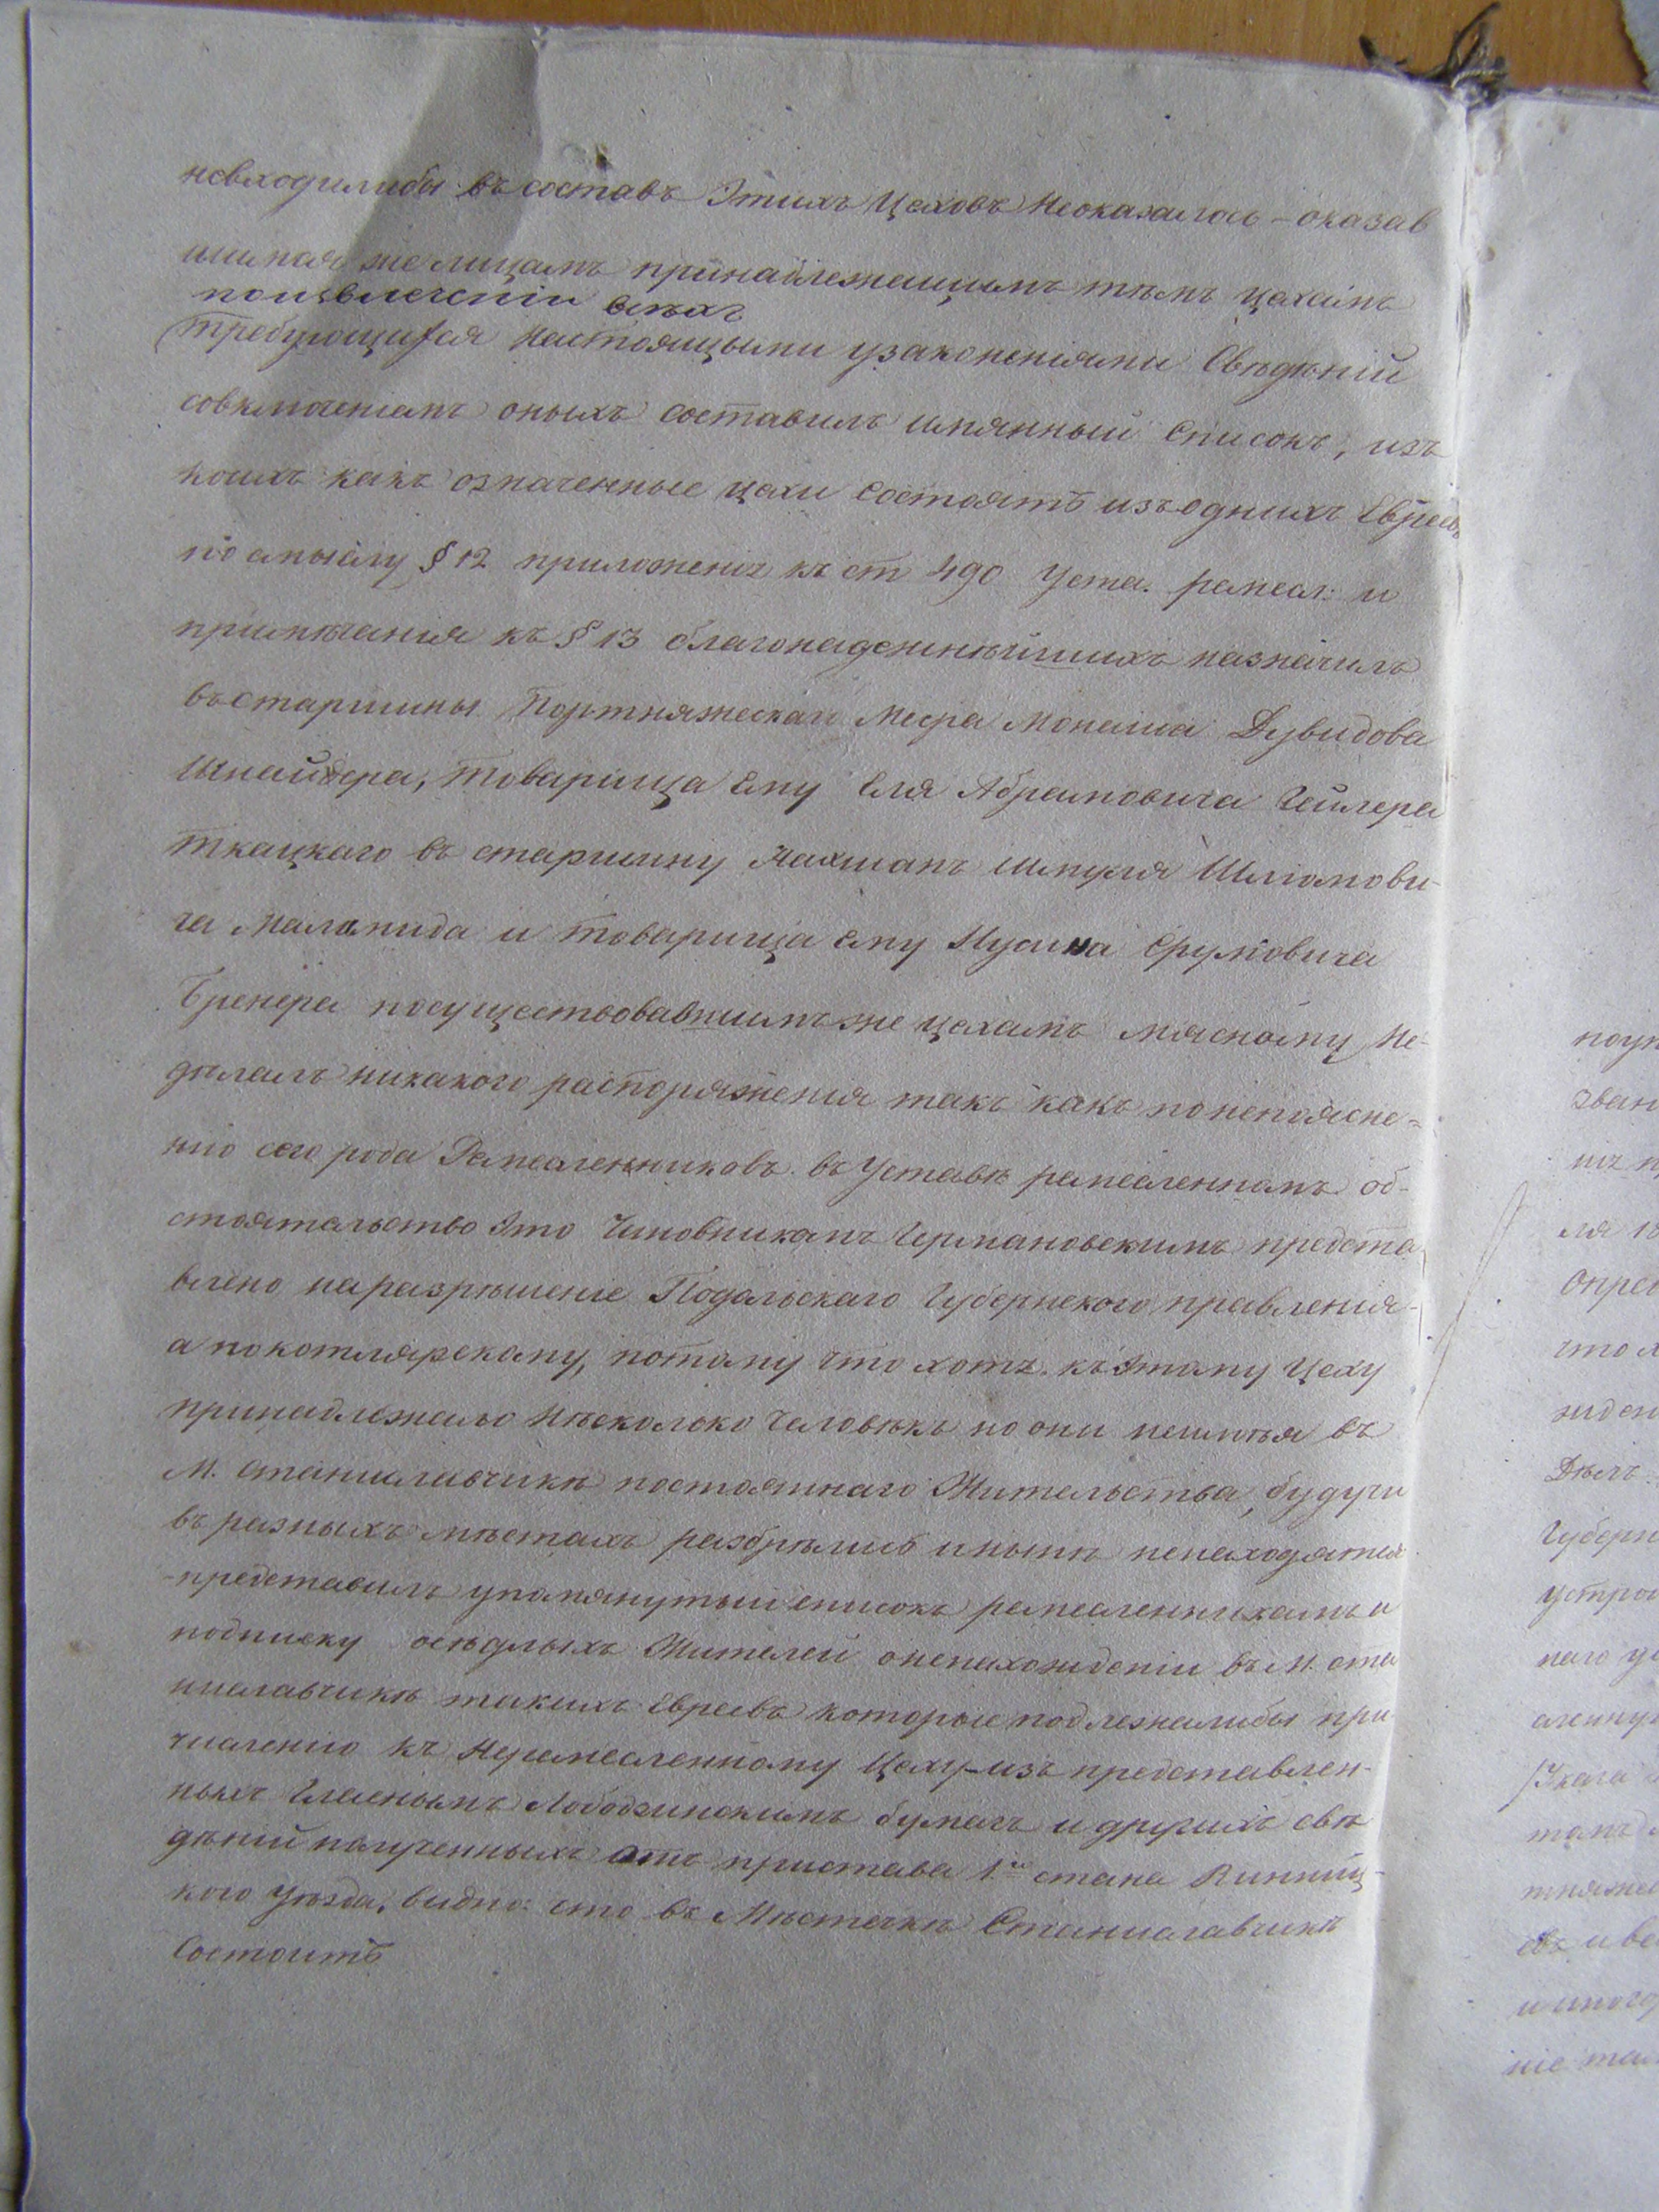 невходилибы въ составъ Этихъ Цеховъ Неоказалось – оказав
шимся же лицамъ принадлежащимъ тѣмъ цехамъ
поизвлеченіи всѣхъ
требующихся Настоящыми узаконеніями Свѣденій
совключеніемъ оныхъ составилъ имянный Списокъ, изъ
коихъ какъ означенные цехи Состоятъ изъ однихъ Евреевъ
по смыслу § 12 приложенія къ ст 490 Уста. ремесл: и
примѣчанія къ § 13 благонадежнѣйшихъ назначилъ
въ старшины Портняжескаго Меера Монаша Дувидова
Шнайдера, товарища Ему Еля Абрамовича Гейлера
ткацкаго въ старшину Нахманъ Шмуля Шліомови-
ча Маламида и товарища Ему Нусина Сруловича
Бренера посуществовавшимъ же цехамъ мясному Не-
дѣлалъ никакого распоряженія такъ какъ понепоясне-
нію сего рода Ремесленниковъ въ Уставѣ ремесленномъ об-
стоятельство Это Чиновникамъ Германовскимъ предста
влено на разрѣшеніе Подольскаго Губернского правленія-
а покотлярскому, потому что хотя къ Этому Цеху
принадлежало Нѣсколько Человѣкъ но они неимѣя въ
М. Станиславчикѣ постояннаго Жительства, будучи
въ разныхъ мѣстахъ разбрѣлись и нынѣ ненаходятся
-представилъ упомянутый списокъ ремесленникамъ и
подписку осѣдлыхъ Жителей оненахожденіи въ М. Ста
ниславчикѣ такихъ Евреевъ которые подлежалибы при
численію къ Неремесленному Цеху-изъ представлен-
ныхъ Гласнымъ Лободзинскимъ бумагъ и другихъ свѣ
дѣній полученныхъ отъ пристава 1го стана Винниц-
кого Уѣзда, видно: что въ Мѣстечкѣ Станиславчикѣ
Состоитъ
поун
зван
ля 18
Опред
что
жден
Дѣлъ
Губерн
устрой
наго
сленну
Указа
тняже